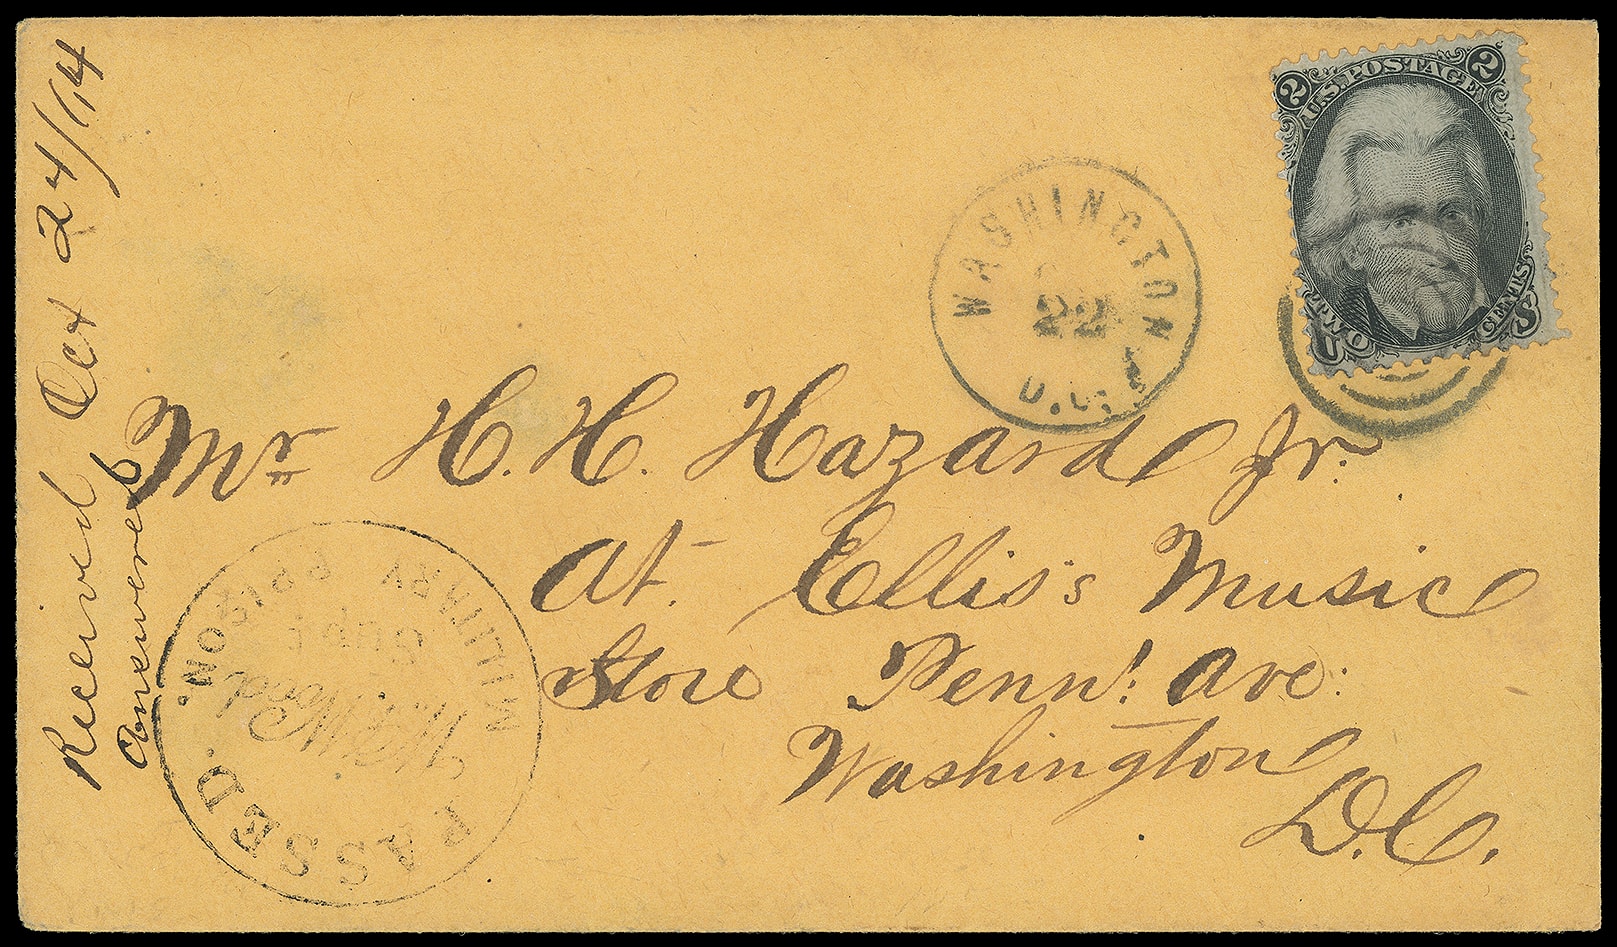 2 U.S. POSTAGE 2
TWO CENTS
U S
WASHINGTON
22
D.C.
Mr. H. H. Hazard Jr.
At. Ellis's Music
Store Penn'. Ave.
Washington
D.C.
Received Oct 24/64
Answered
MILITARY PRISON.
Supt
W.P. Wood
PASSED.